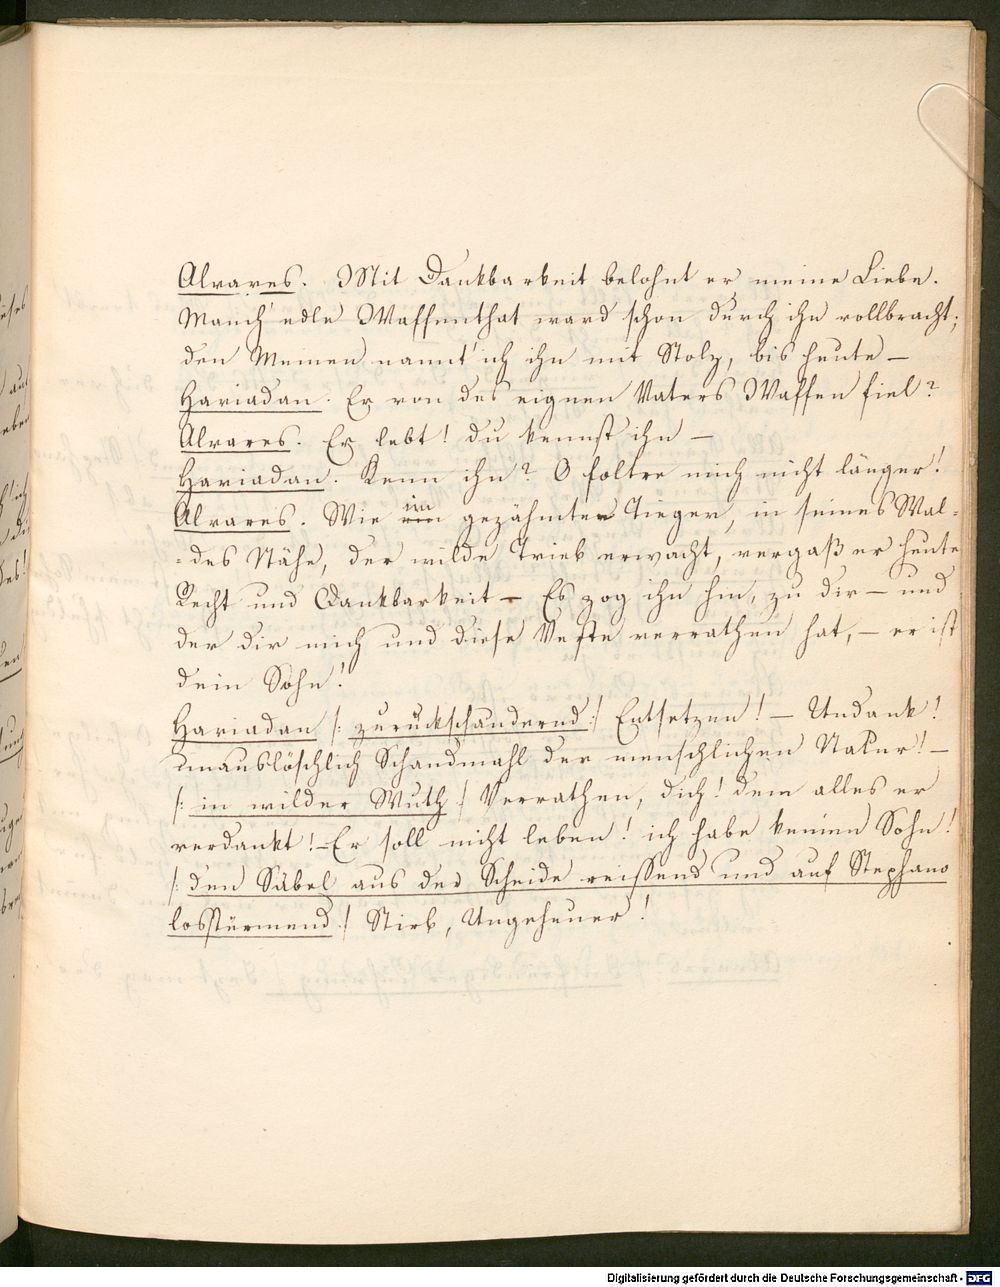 Alvares. Mit Dankbarkeit belohnt er meine Liebe.
Manch' edle Waffenthat ward schon durch ihn vollbracht;
den Meinen nannt' ich ihn mit Stolz, bis heute –
Hariadan. Er von des eignen Vaters Waffen fiel?
Alvares. Er lebt! du kennst ihn –
Hariadan. Kenn ihn? O foltre mich nicht länger!
Alvares. Wie im gezähmten Tieger, in seines Wal-
=des Nähe, der wilde Trieb erwacht, vergaß er heute
Recht und Dankbarkeit – Es zog ihn hin, zu dir – und
der dir mich und diese Veste verrathen hat, – er ist
dein Sohn!
Hariadan /: zurückschaudernd :/ Entsetzen! – Undank!
unauslöschlich Schandmahl der menschlichen Natur! –
/: in wilder Wuth :/ Verrathen, dich! dem alles er
verdankt! – Er soll nicht leben! ich habe keinen Sohn!
/: den Säbel aus der Scheide reissend und auf Stephano
losstürmend :/ Stirb, Ungeheuer!
Digitalisierung gefördert durch die Deutsche Forschungsgemeinschaft - DFG